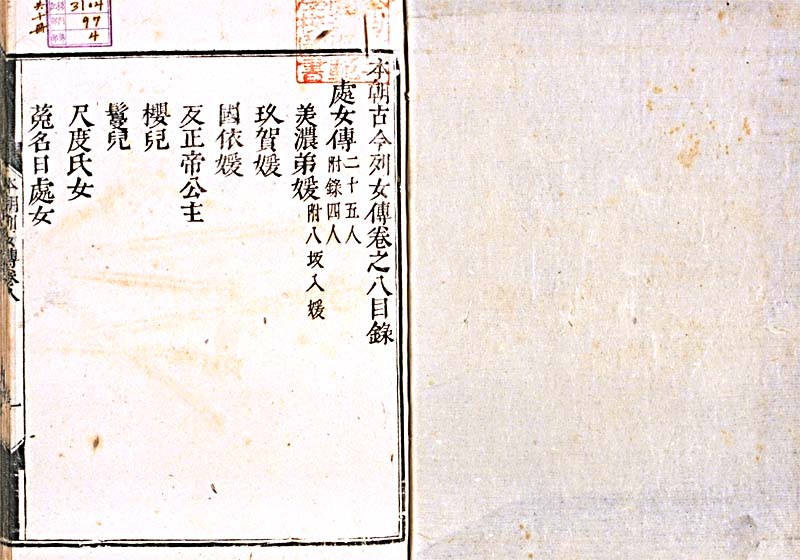 本朝古今列女傳卷之八目錄
處女傳二十五人附錄四人
美濃弟媛附八坂入媛
玖賀媛
國依媛
反正帝公主
櫻兒
鬘兒
尺度氏女
菟名日處女
本朝列女傳卷八
共十冊
3104
97
4